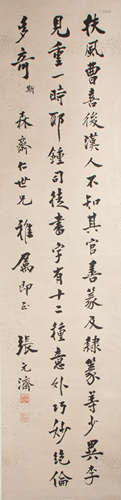 扶風曹喜後漢人不知其官善篆及隸篆等少異李
見重一時耶鍾司徒書字有十二種意外巧妙絕倫
多奇 斯 森齋仁世兄雅屬即正 張元濟